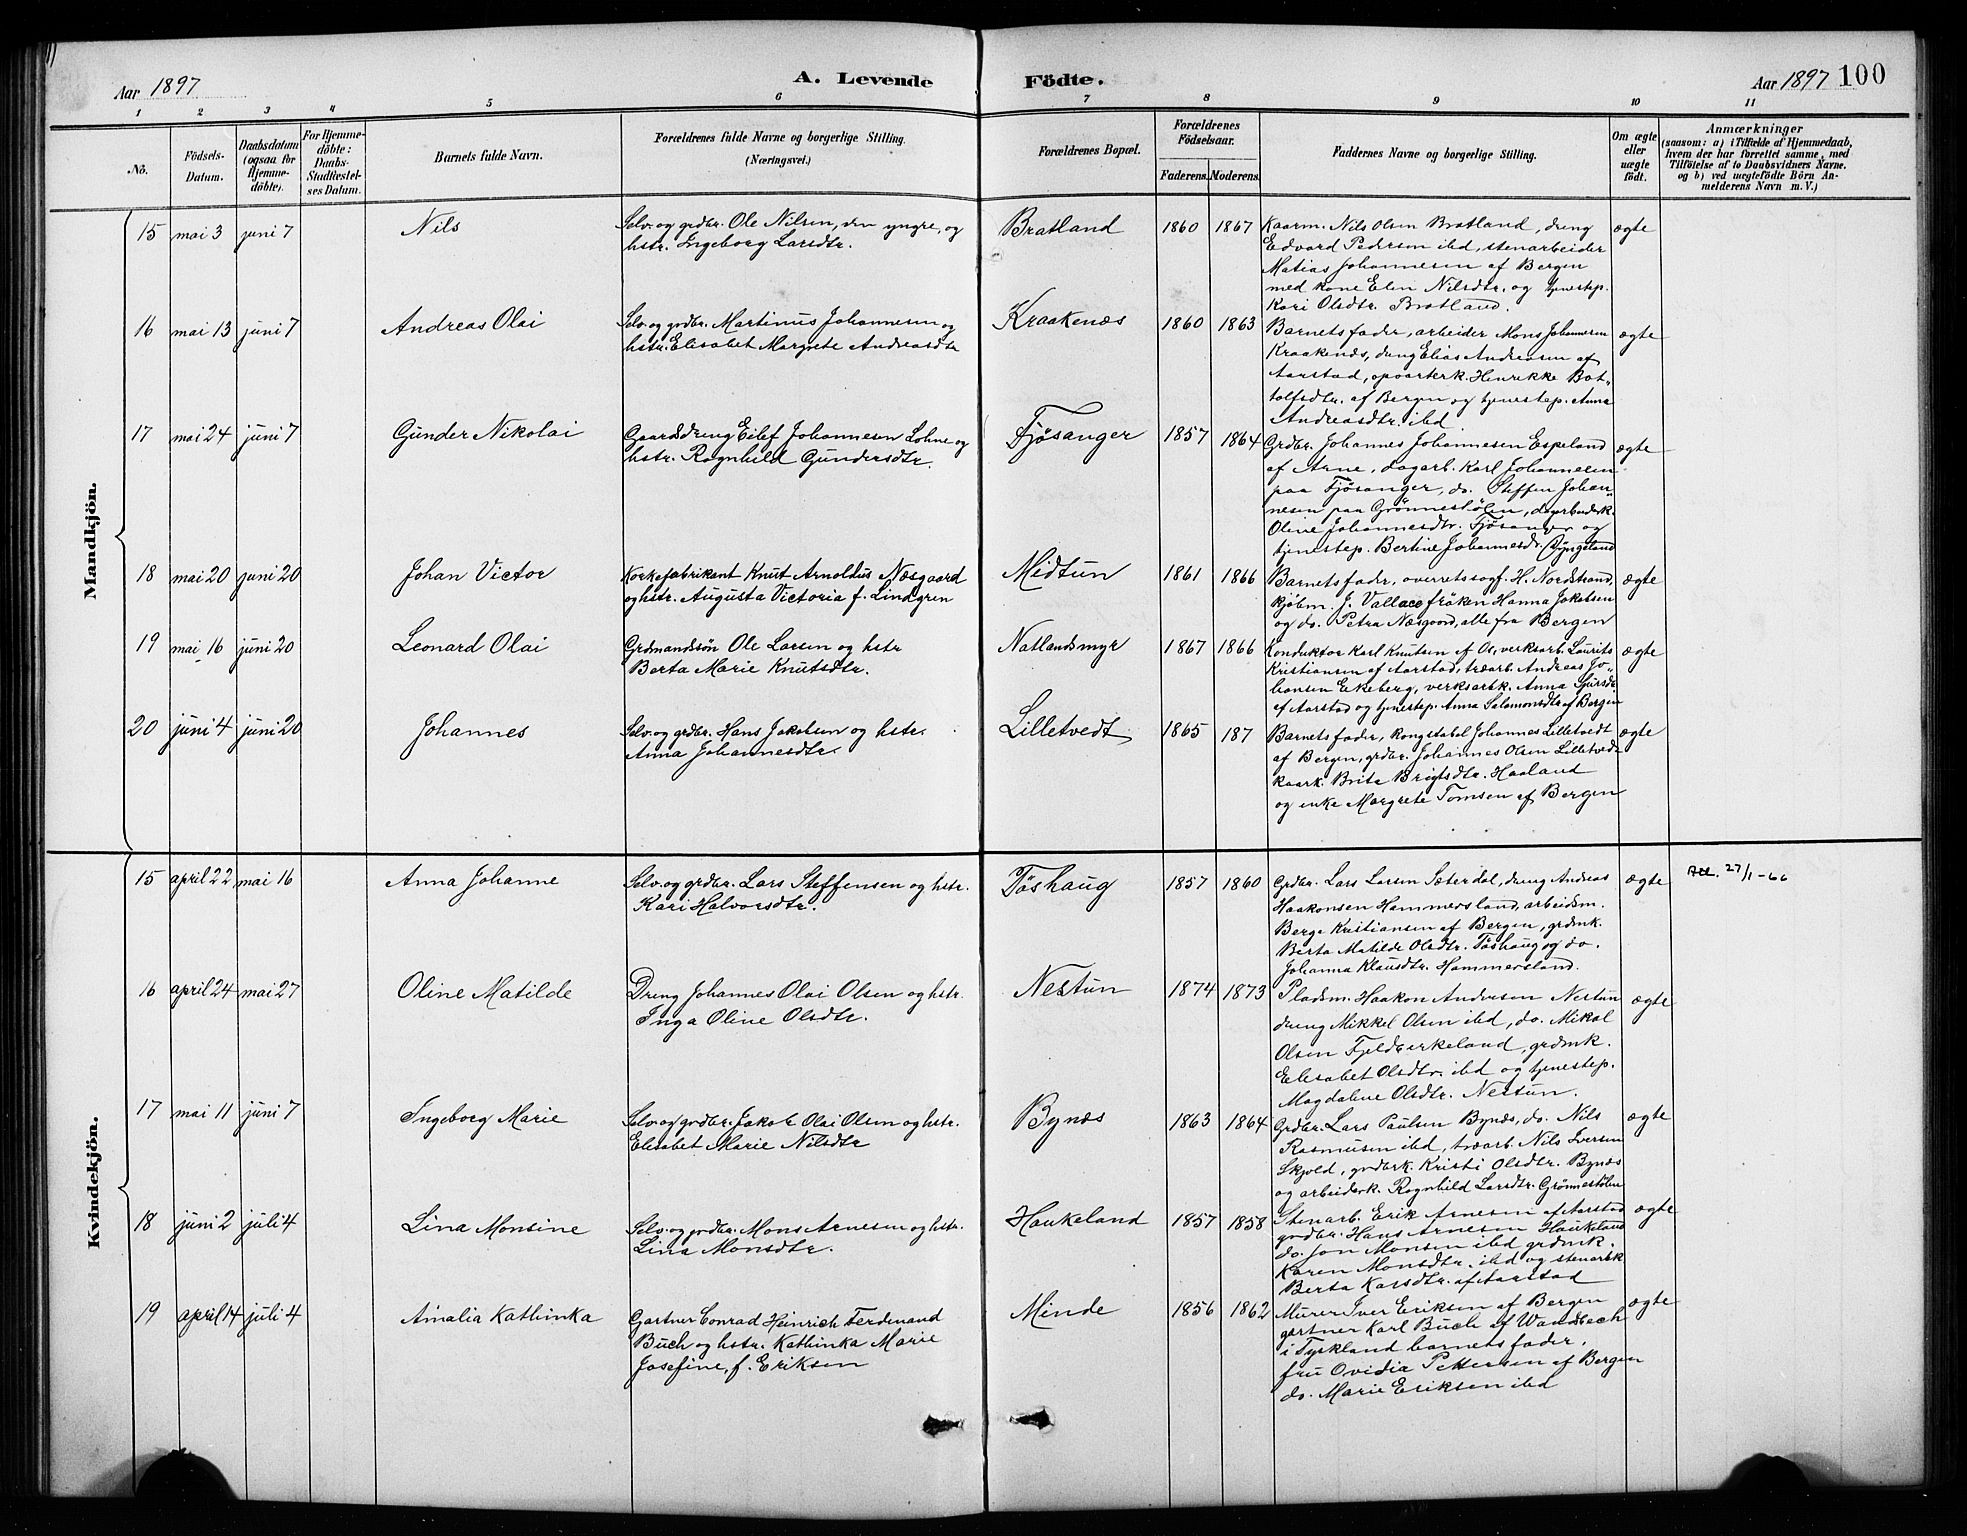 Aar 1897
A. Levende
Födte.
Aar 1897 100
1 2 3 4 5 6 7 8 9 10 11
No.
Födsels-
Datum.
Daabsdatum
(ogsaa for
Hjemme-
döbte).
For Hjemme-
döbte:
Daabs-
Stadfæstel-
ses Datum.
Barnets fulde Navn.
Forældrenes fulde Navne og borgerlige Stilling.
(Næringsvei.)
Forældrenes Bopæl.
Forældrenes
Födselsaar.
Faderens. Moderens.
Faddernes Navne og borgerlige Stilling.
Om ægte
eller
uægte
födt.
Anmærkninger
(saasom: a) i Tilfælde af Hjemmedaab,
hvem der har forrettet samme, med
Tilföielse af to Daabsvidners Navne,
og b) ved uægtefödte Börn An-
melderens Navn m. V.)
Mandkjön.
15 mai 3 juni 7 Nils
Selv. og grdbr. Ole Nilsen, den yngre, og
hstr. Ingeborg Larsdtr.
Bratland 1860 1867
Kaarm. Nils Olsen Bratland, dreng
Edvard Pedersen ibd, stenarbeider
Matias Johannesen af Bergen
med kone Elen Nilsdtr. og tjenestep.
Kari Olsdtr. Bratland.
ægte
16 mai 13 juni 7 Andreas Olai
Selv. og grdbr. Martinus Johannesen og
hstr. Elisabet Margrete Andreasdtr
Kraakenæs 1860 1863
Barnets fader, arbeider Mons Johannesen
Kraakenæs, dreng Elias Andreasen af
Aarstad, opvarterk. Henrikke Bot-
tolfsdtr. af Bergen og tjenestep. Anna
Andreasdtr. ibd.
ægte
17 mai 24 juni 7 Gunder Nikolai
Gaardsdreng Eilef Johannesen Lohne og
hstr. Ragnhild Gundersdtr.
Fjösanger 1857 1864
Grdbr. Johannes Johannesen Espeland
af Arne, dagarb. Karl Johannesen
paa Fjösanger, do. Steffen Johan-
nesen paa Grönnestölen, dagarbeiderk.
Oline Johannesdtr. Fjösanger og
tjenestep. Bertine Johannesdtr.
ægte
18 mai 20 juni 20 Johan Victor
Korkefabrikant Knut Arnoldus Næsgaard
og hstr. Augusta Victoria f. Lindgren
Midtun 1861 1866
Barnets fader, overretssagf. H. Nordstrand,
kjöbm. J. Vallace fröken Hanna Jakobsen
og do. Petra Næsgaard, alle fra Bergen
ægte
19 mai 16 juni 20 Leonard Olai
Grdmandssön Ole Larsen og hstr
Berta Marie Knutsdtr.
Natlandsmyr 1867 1866
Konduktör Karl Knutsen af Os, verksarb. Laurits
Kristiansen af Aarstad, træarb. Andreas Jo-
hansen Ekeberg, verksarbk. Anna Sjursdtr.
af Aarstad og tjenestep. Anna Salamonsdtr af Bergen
ægte
20 juni 4 juni 20 Johannes
Selv. og grdbr. Hans Jakobsen og hstr.
Anna Johannesdtr.
Lilletvedt 1865 187
Barnets fader, Kongstabel Johannes Lilletvedt
af Bergen, grdbr. Johannes Olsen Lilletvedt
kaark. Brita Brigtsdtr. Haaland
og enke Margrete Tomsen af Bergen
ægte
Kvindekjön.
15 april 22 mai 16 Anna Johanne
Selv. og grdbr. Lars Steffensen og hstr.
Kari Halvorsdtr.
Töshaug 1857 1860
Grdbr. Lars Larsen Sæterdal, dreng Andreas
Haakonsen Hammersland, arbeidsm.
Berge Kristiansen af Bergen, grdmk.
Berta Matilde Olsdtr. Töshaug og do.
Johanna Klausdtr. Hammersland.
ægte Att. 27/1-66
16 april 24 mai 27 Oline Matilde
Dreng Johannes Olai Olsen og hstr.
Inga Oline Olsdtr.
Nestun 1874 1873
Pladsm. Haakon Andersen Nestun
dreng Mikkel Olsen ibd, do. Mikal
Olsen Fjeldbirkeland, grdmk.
Elisabet Olsdtr. ibd og tjenestep.
Magdalene Olsdtr. Nestun.
ægte
17 mai 11 juni 7 Ingeborg Marie
Selv. og grdbr. Jakob Olai Olsen og hstr.
Elisabet Marie Nilsdtr
Bynæs 1863 1864
Grdbr. Lars Paulsen Bynæs, do. Nils
Rasmussen ibd, træarb. Nils Iversen
Skjold, grdbrk. Kristi Olsdtr. Bynæs
og arbeiderk. Ragnhild Larsdtr. Grönnestölen
ægte
18 juni 2 juli 4 Lina Monsine
Selv. og grdbr. Mons Arnesen og hstr.
Lina Monsdtr.
Haukeland 1857 1858
Stenarb. Erik Arnesen af Aarstad
grdbr. Hans Arnesen Haukeland
do. Jon Monsen ibd grdmk.
Karen Monsdtr. ibd og stenarbk
Berta Larsdtr. af Aarstad
ægte
19 april 14 juli 4 Amalia Kathinka
Gartner Conrad Heinrich Ferdinand
Buch og hstr. Kathinka Marie
Josefine, f. Eriksen
Minde 1856 1862
Murer Iver Eriksen af Bergen
gartner Karl Buch af Wandsbech
i Tyskland barnets fader.
fru Ovidia Pettersen af Bergen
do. Marie Eriksen ibd
ægte